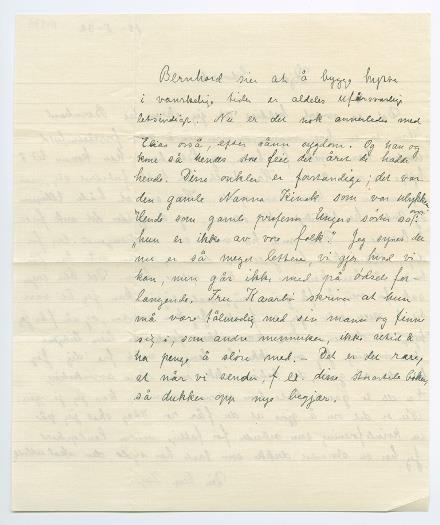 Bernhard sier at å bygge hytte
i vanskelige tider er aldeles uforsvarlig
letsindig. Nu er det nok annerledes med
Elias også, efter sånn sygdom. Og han og
kone så hendes store feie det året de hadde
hende. Disse onkler er forstandige; det var
den gamle Nanna som var
som gamle professor Ungers søster sa:
"hun er ikke av vore folk." Jeg synes det
nu er så meget lettere, vi gjør hvad vi
kan, men går ikke med på ødsel for-
langende. Fru skriver at hun
må være tålmodig med sin mann og finne
sig i, som andre mennesker, ikke altid å
ha penge å sløse med. – Det er det rare,
at når vi sender, f. ex. disse storartede bøker,
så dukker op nye begjær.